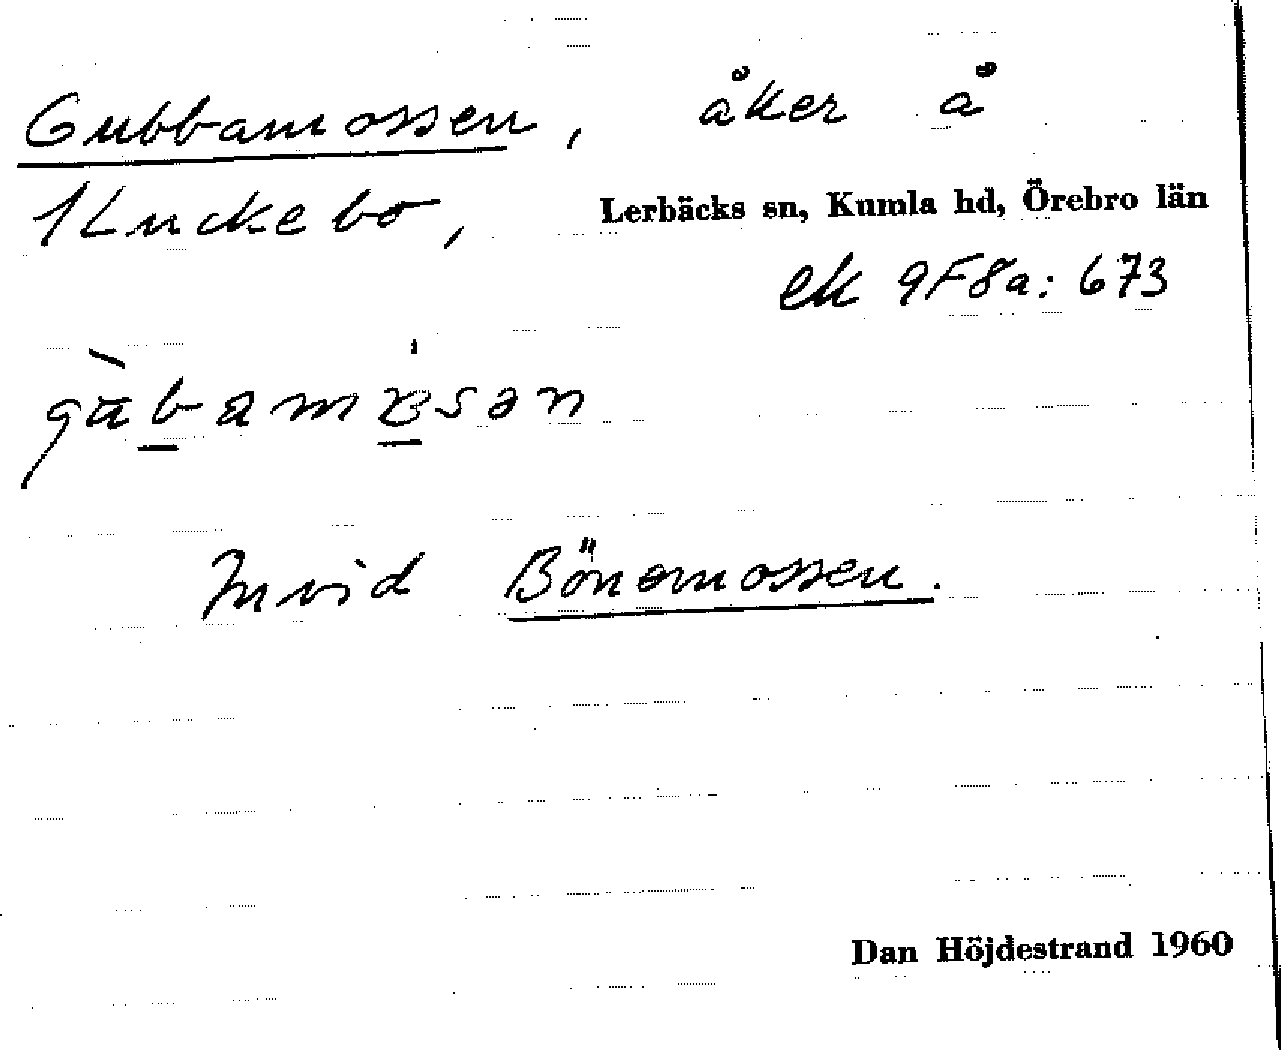 Gubbamossen, åker å
1 Kuckebo, Lerbäcks sn, Kumla hd, Örebro län
ek 9F8a: 673
Invid Bönamossen.
Dan Höjdestrand 1960